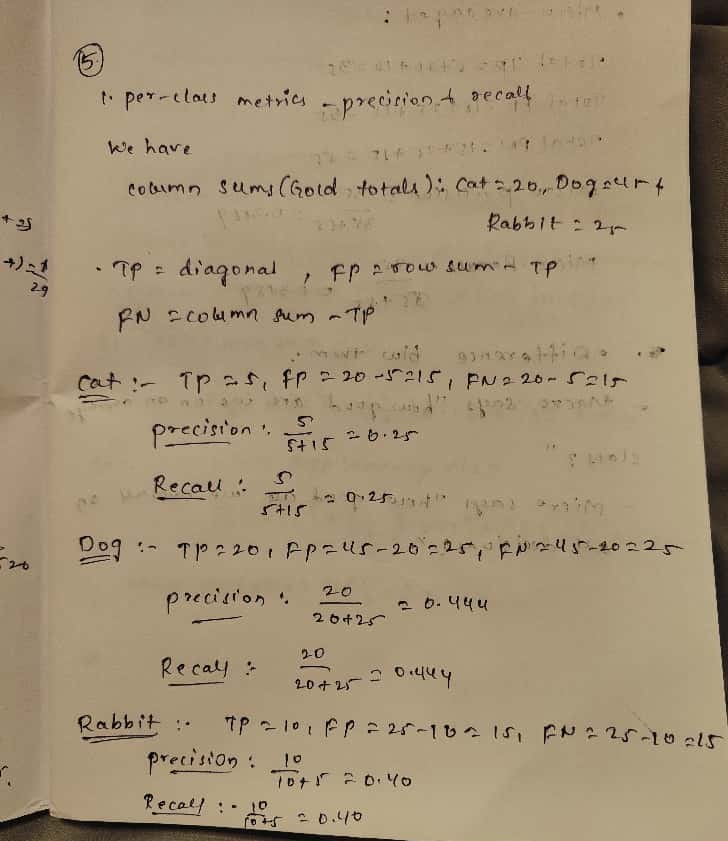 5.
1. per-class metrics - precision & recall
We have
column sums (Gold totals): Cat = 20, Dog = 45 &
Rabbit = 25
• TP = diagonal , FP = row sum - TP
FN = column sum - TP
Cat :- TP = 5, FP = 20-5=15, FN = 20-5=15
precision : 5/5+15 = 0.25
Recall : 5/5+15 = 0.25
Dog :- TP = 20, FP = 45-20 = 25, FN = 45-20 = 25
precision : 20/20+25 = 0.444
Recall : 20/20+25 = 0.444
Rabbit :- TP = 10, FP = 25-10 = 15, FN = 25-10 = 15
precision : 10/10+5 = 0.40
Recall :- 10/10+5 = 0.40